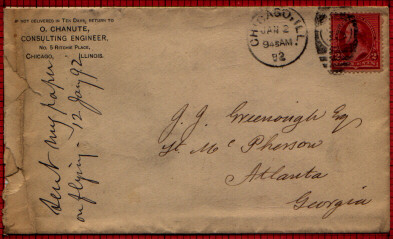 IF NOT DELIVERED IN TEN DAYS, RETURN TO
O. CHANUTE,
CONSULTING ENGINEER,
No. 5 RITCHIE PLACE,
CHICAGO, ILLINOIS.
CHICAGO, ILL.
JAN 2
9 AM
92
sent my paper
on flying - 12 Jany 92
J. J. Greenough Esq
Ft. Mc Pherson
Atlanta
Georgia